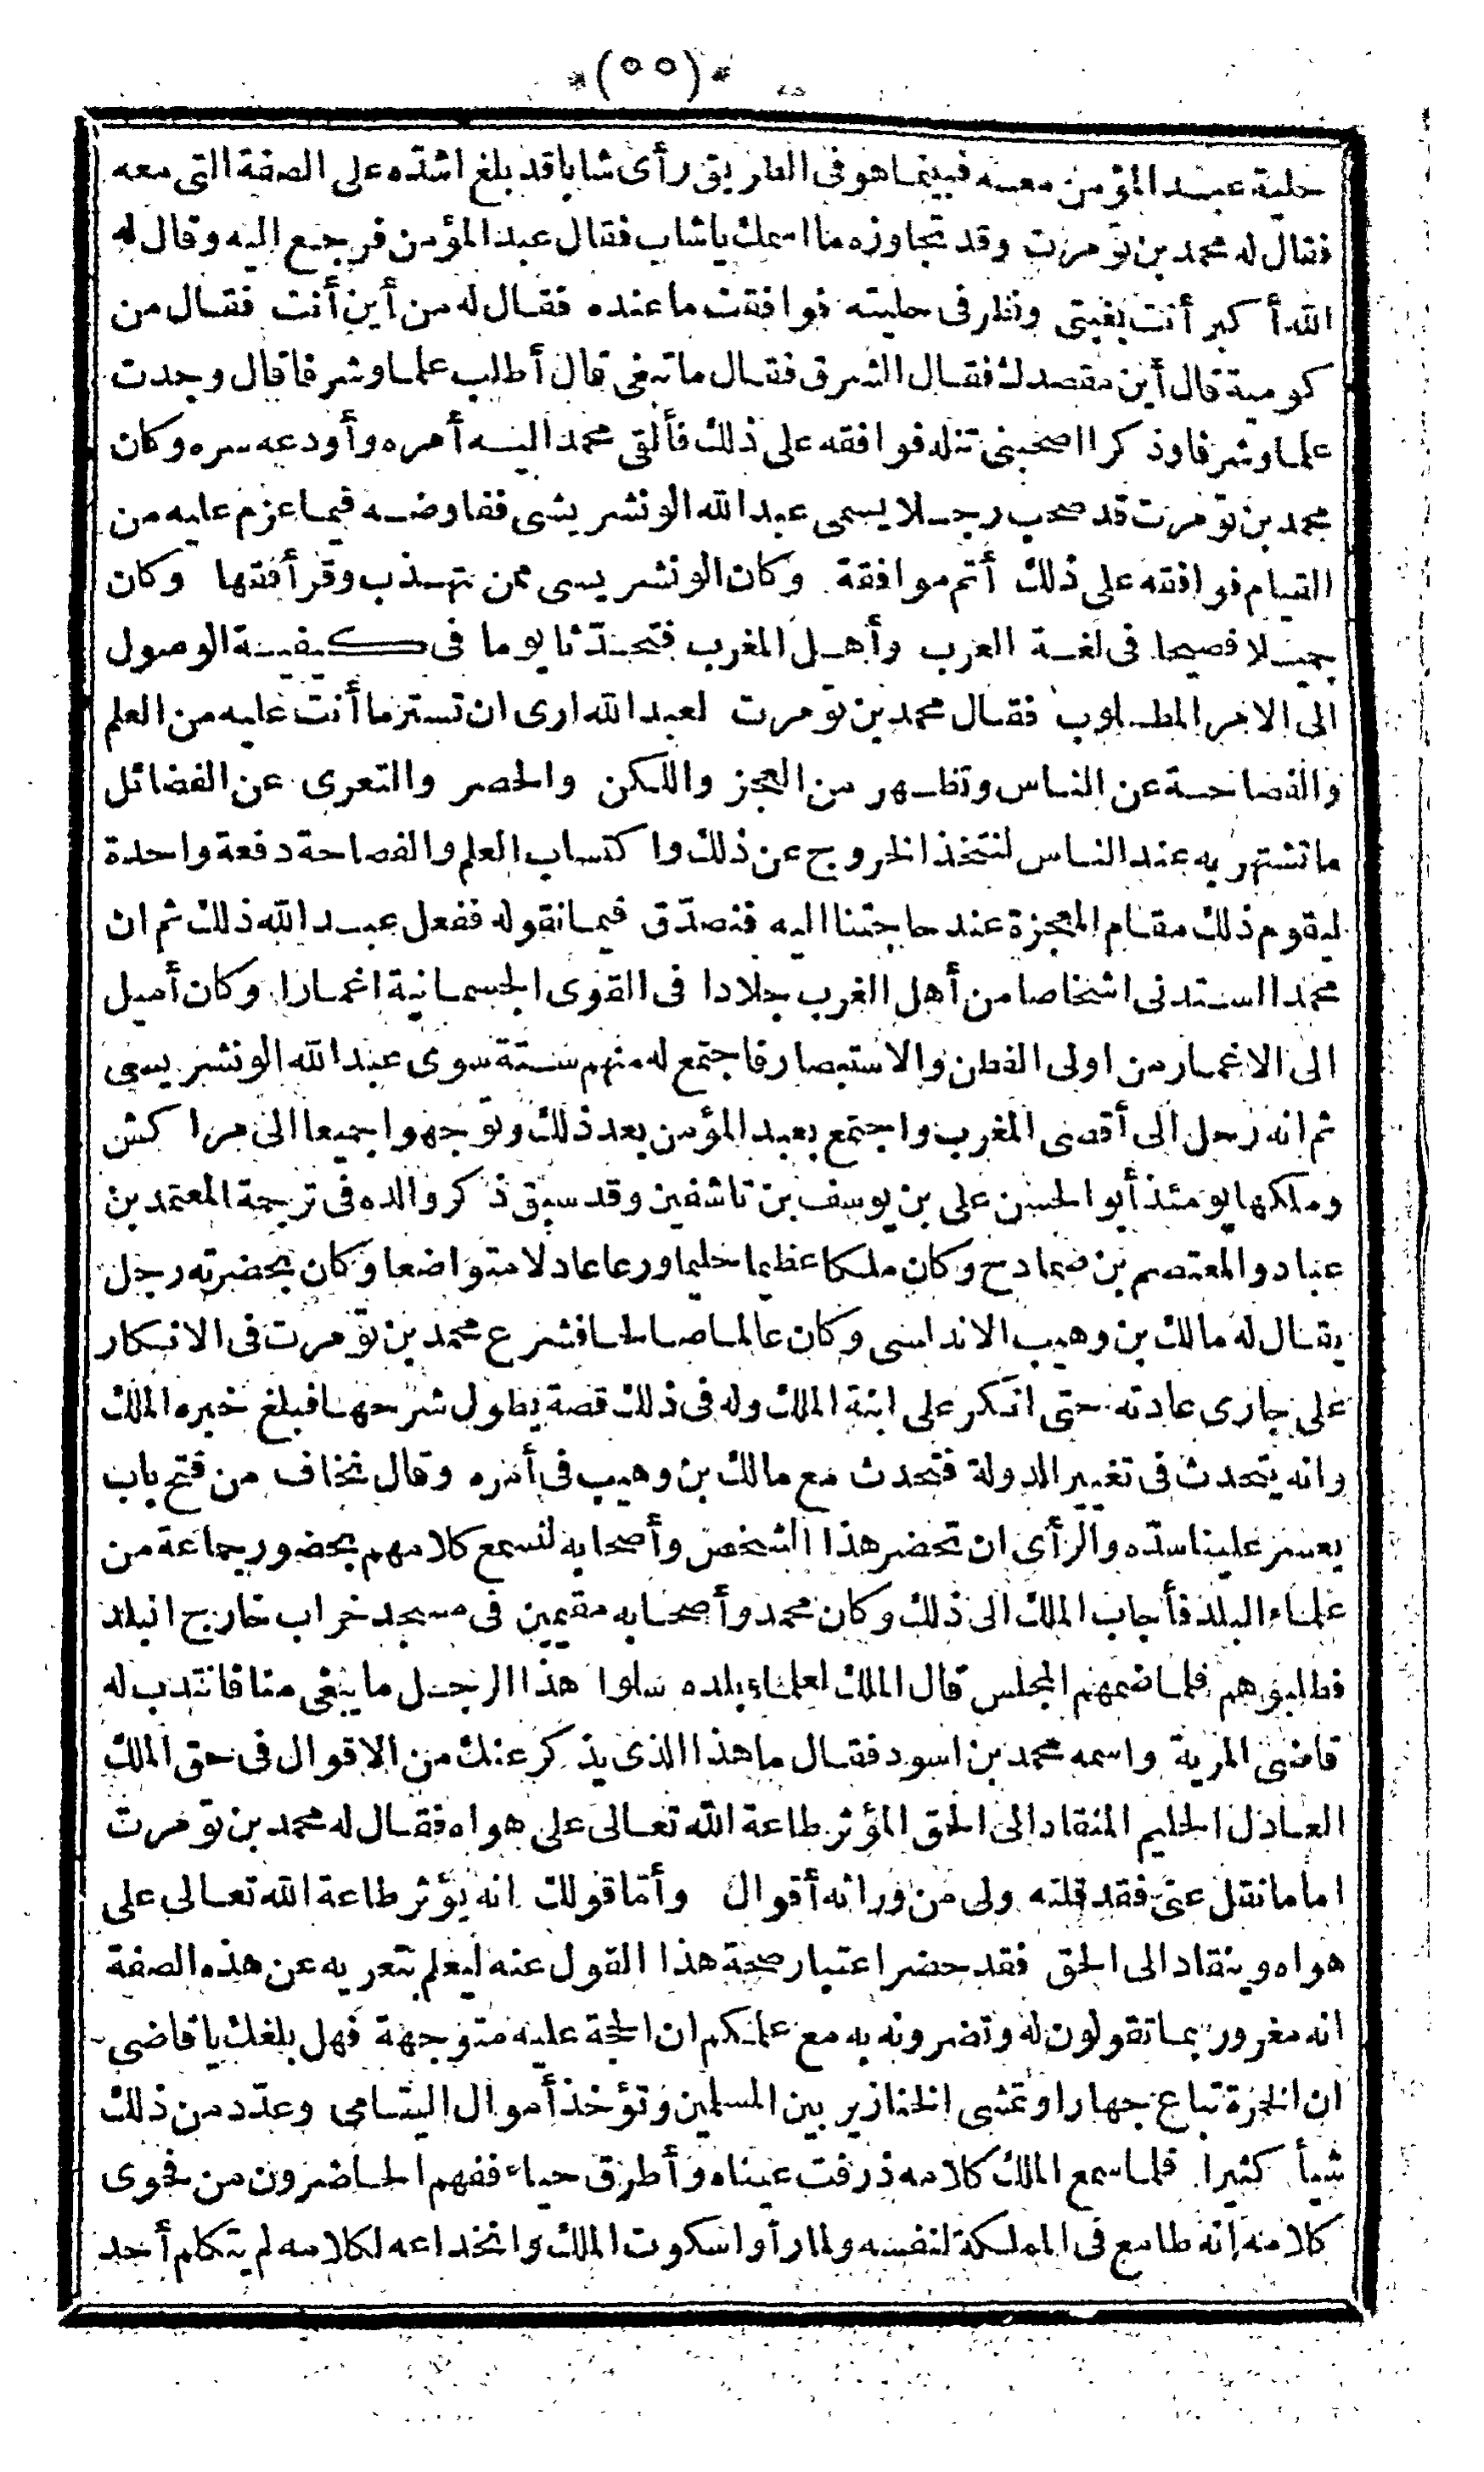 *(٥٥)*
حلية عبد المؤمن معه فبينما هو فى الطريق رأى شابا قد بلغ اشدّه على الصفة التى معه
فقال له محمد بن تومرت وقد تجاوزه ما اسمك يا شاب فقال عبد المؤمن فرجع اليه وقال له
الله أكبر أنت بغيتى ونظر فى حليته فوافقت ما عنده فقال له من أين أنت فقال من
كومية قال أين مقصدك فقال الشرق فقال ما تبغى قال أطلب علما وشرفا قال وجدت
علما وشرفا وذكرا اصحبنى تنله فوافقه على ذلك فألقى محمد اليه أمره وأودعه سره وكان
محمد بن تومرت قد صحب رجلا يسمى عبد الله الونشريشى ففاوضه فيما عزم عليه من
القيام فوافقه على ذلك أتم موافقة وكان الونشريسى ممن تهذب وقرأ فقها وكان
جميلا فصيحا فى لغة العرب وأهل المغرب فتحدّثا يوما فى كيفية الوصول
الى الامر المطلوب فقال محمد بن تومرت لعبد الله ارى ان تستر ما أنت عليه من العلم
والفصاحة عن الناس وتظهر من العجز واللكن والحصر والتعرى عن الفضائل
ما تشتهر به عند الناس لنتخذ الخروج عن ذلك واكتساب العلم والفصاحة دفعة واحدة
ليقوم ذلك مقام المعجزة عند حاجتنا اليه فنصدّق فيما نقوله ففعل عبد الله ذلك ثم ان
محمدا استدنى اشخاصا من أهل الغرب جلادا فى القوى الجسمانية اغمارا وكان أميل
الى الاغمار من اولى الفطن والاستبصار فاجتمع له منهم ستة سوى عبد الله الونشريسى
ثم انه رحل الى أقصى المغرب واجتمع بعبد المؤمن بعد ذلك وتوجهوا جميعا الى مراكش
وملكها يومئذ أبو الحسن على بن يوسف بن تاشفين وقد سبق ذكر والده فى ترجمة المعتمد بن
عباد والمعتصم بن صمادح وكان ملكا عظيما حليما ورعا عادلا متواضعا وكان بحضرته رجل
يقال له مالك بن وهيب الاندلسى وكان عالما صالحا فشرع محمد بن تومرت فى الانكار
على جارى عادته حتى انكر على ابنة الملك وله فى ذلك قصة يطول شرحها فبلغ خبره الملك
وانه يتحدث فى تغيير الدولة فتحدث مع مالك بن وهيب فى أمره وقال نخاف من فتح باب
يعسر علينا سدّه والرأى ان تحضر هذا الشخص وأصحابه لنسمع كلامهم بحضور جماعة من
علماء البلد فأجاب الملك الى ذلك وكان محمد وأصحابه مقيمين فى مسجد خراب خارج البلد
فطلبوهم فلما ضمهم المجلس قال الملك لعلماء بلده سلوا هذا الرجل ما يبغى منا فانتدب له
قاضى المرية واسمه محمد بن اسود فقال ما هذا الذى يذكر عنك من الاقوال فى حق الملك
العادل الحليم المنقاد الى الحق المؤثر طاعة الله تعالى على هواه فقال له محمد بن تومرت
اما ما نقل عنى فقد قلته ولى من ورائه أقوال وأمّا قولك انه يؤثر طاعة الله تعالى على
هواه وينقاد الى الحق فقد حضر اعتبار صحة هذا القول عنه ليعلم بتعريه عن هذه الصفة
انه مغرور بما تقولون له وتضرونه به مع علمكم ان الحجة عليه متوجهة فهل بلغك يا قاضى
ان الخمرة تباع جهارا وتمشى الخنازير بين المسلمين وتؤخذ أموال اليتامى وعدّد من ذلك
شيأ كثيرا فلما سمع الملك كلامه ذرفت عيناه وأطرق حياء ففهم الحاضرون من فحوى
كلامه انه طامع فى المملكة لنفسه ولما رأوا سكوت الملك وانخداعه لكلامه لم يتكلم أحد